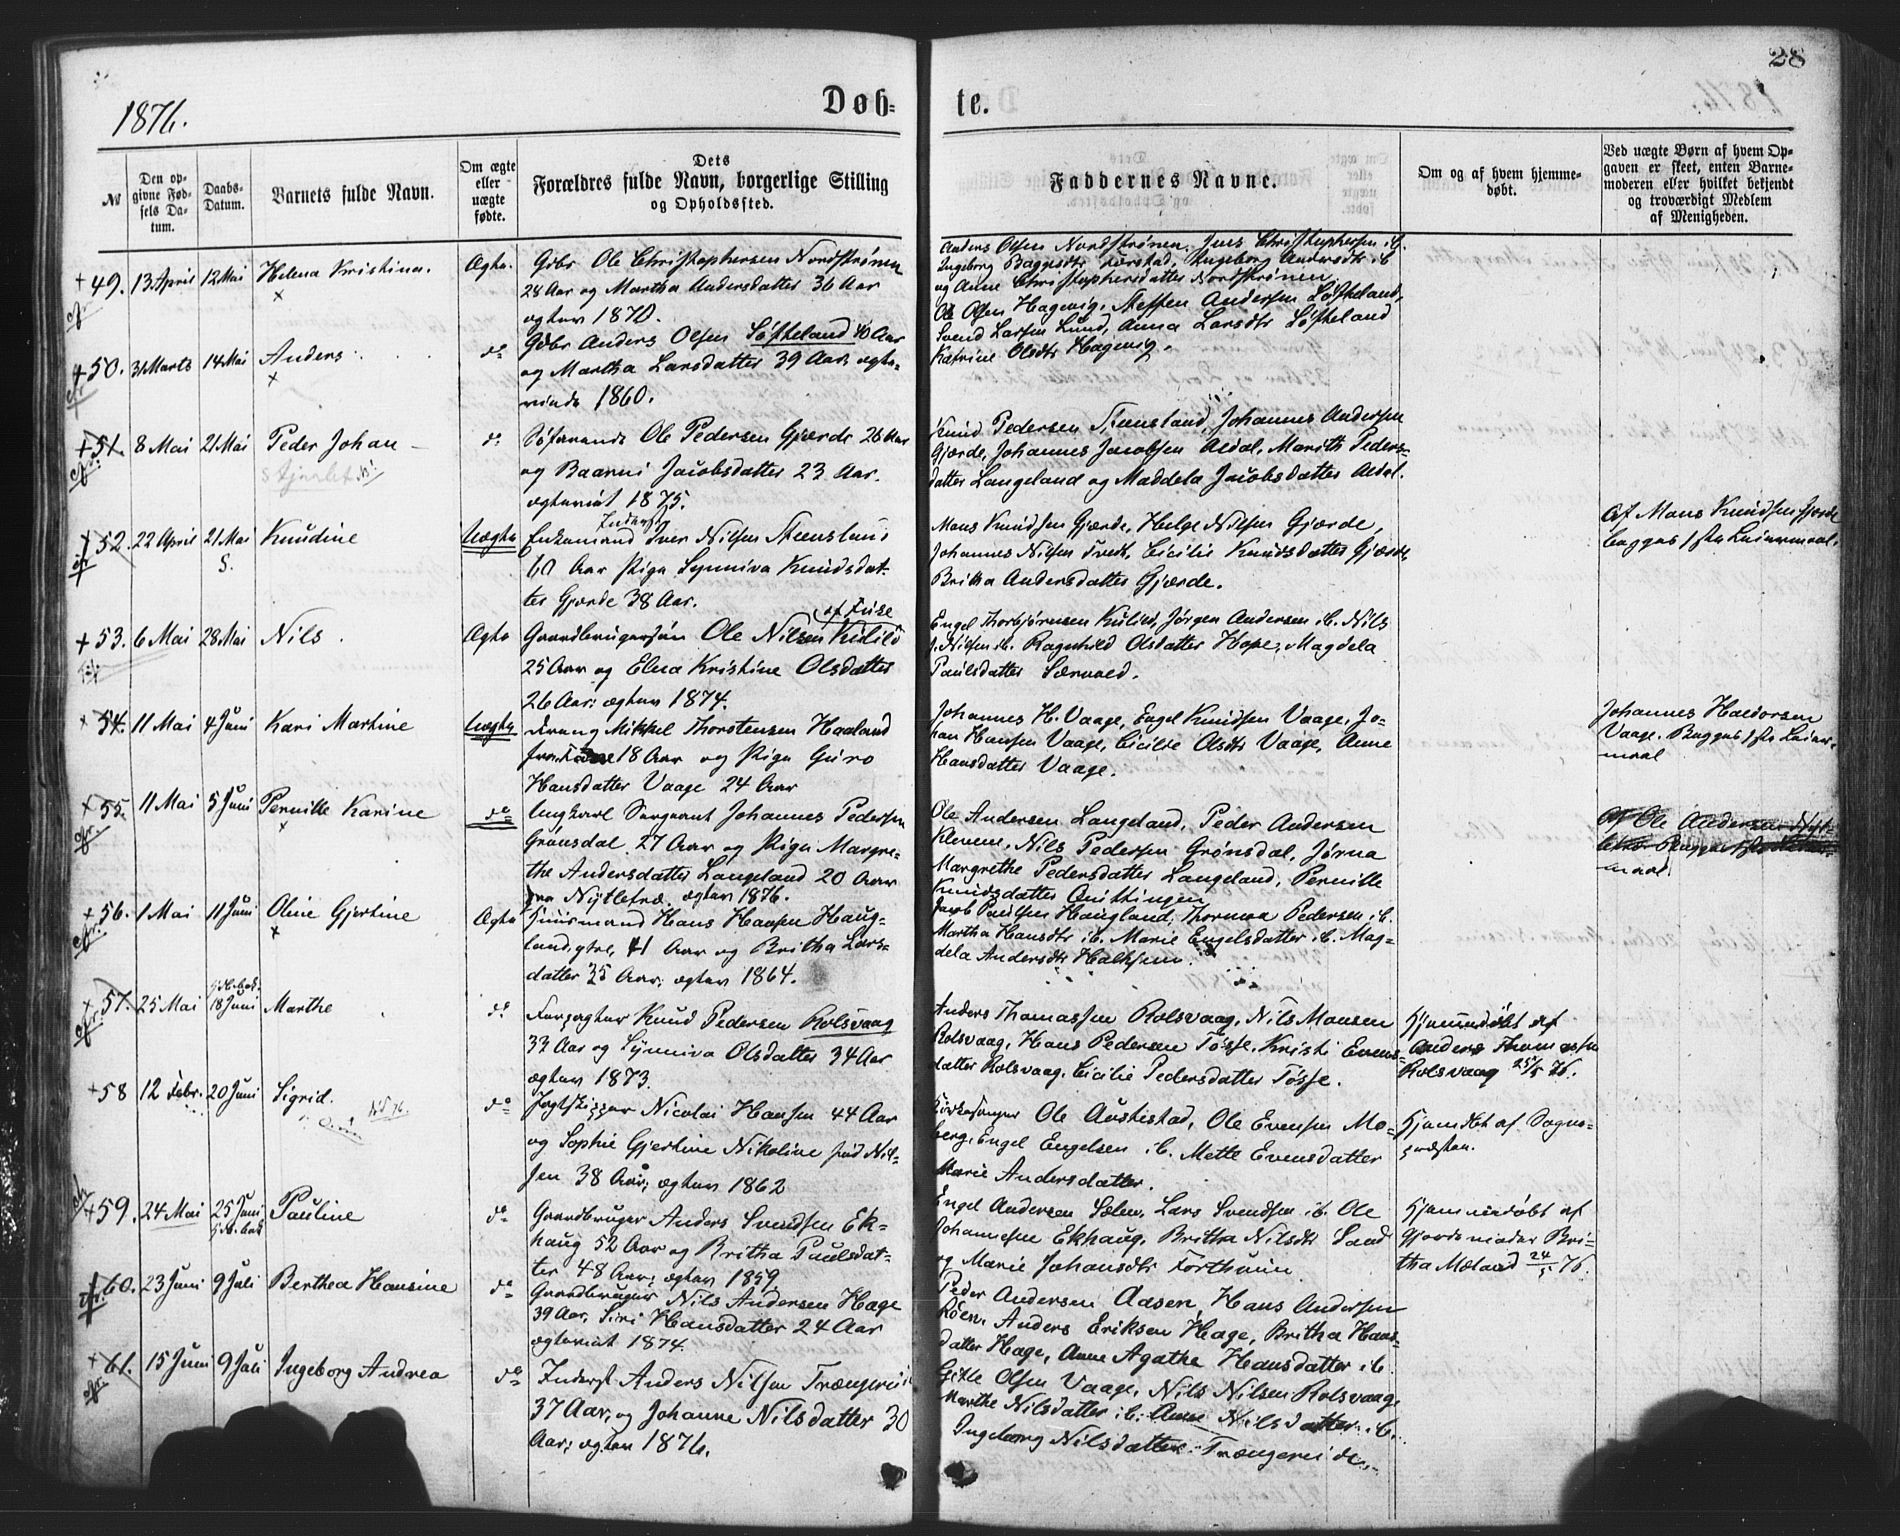 28
1876.
Døb-
te.
№
Den op-
givne Fød-
sels Da-
tum.
Daabs-
Datum.
Barnets fulde Navn.
Om ægte
eller
uægte
fødte.
Dets
Forældres fulde Navn, borgerlige Stilling
og Opholdssted.
Faddernes Navne.
Om og af hvem hjemme-
døbt.
Ved uægte Børn af hvem Op-
gaven er skeet, enten Barne-
moderen eller hvilket bekjendt
og troværdigt Medlem
af Menigheden.
49. 13 April 12 Mai Helena Kristina. Ægte.
Gdbr Ole Christophersen Nordstrønen
28 Aar og Martha Andersdatter 36 Aar
ægtev 1870.
Anders Olsen Nordstrønen. Jens Christophersen i.b.
Ingeborg Baggesdtr Ingeborg Andersdtr i.b
og Anne Christophersdatter Nordstrønen.
50. 31 Marts 14 Mai Anders do
Gdbr Anders Olsen Søfteland 40 Aar
og Martha Larsdatter 39 Aar, ægte-
viede 1860.
Ole Olsen Hagevig, Steffen Andersen Søfteland,
Svend Larsen Lund, Anna Larsdtr Søfteland
Katrine Olsdtr Hagevig.
51. 8 Mai 21 Mai Peder Johan do
Søfarende Ole Pedersen Gjærde 26 Aar
og Jacobsdatter 23 Aar.
ægteviet 1875.
Knud Pedersen Steensland, Johannes Andersen
Gjærde, Johannes Jacobsen Aldal, Marith Peders-
datter Langeland og Maddela Jacobsdatter Aldal.
52. 22 April 21 Mai Knudine Uægte
Enkemand Iver Nilsen
60 Aar Pige Synniva Knudsdat-
ter Gjærde 38 Aar.
Mons Knudsen Gjærde, Helge Nilsen Gjærde,
Johannes Nilsen Tvedt, Cicilie Knudsdatter Gjærde,
Britha Andersdatter Gjærde.
Af Mons Knudsen Gjærde
begges 1ste Leiermaal.
53. 6 Mai 28 Mai Nils. Ægte
af Fuse
Gaardbrugersøn Ole Nilsen Kulild
25 Aar og Elna Kristine Olsdatter
26 Aar; ægtev 1874.
Engel Thorbjørnsen Jørgen Andersen i.b. Nils
J. Nilsen i.b. Ragnhild Olsdatter Hope, Magdela
Paulsdatter Særvold.
54. 11 Mai 4 Juni Kari Martine Uægte
Dreng Mikkel Thorstensen Haaland
18 Aar og Pige Guro
Hansdatter Vaage 24 Aar
Johannes H. Vaage, Engel Knudsen Vaage, Jo-
han Hansen Vaage, Cicilie Olsdtr Vaage, Anne
Hansdatter Vaage.
Johannes Haldorsen
Vaage. Begges 1ste Leier-
maal
55. 11 Mai 5 Juni Pernille Karine do
Ungkarl Sergeant Johannes Pedersen
Grønsdal 27 Aar og Pige Margre-
the Andersdatter Langeland 20 Aar
ægtev 1876.
Ole Andersen Langeland, Peder Andersen
Klevene, Nils Pedersen Grønsdal, Jørna
Margrethe Pedersdatter Langeland, Pernille
Knudsdatter Qvittingen
Af Ole Andersen
Begges 1ste
maal
56. 1 Mai 11 Juni Oline Gjertine Ægte
Huusmand Hans Hansen Haug-
land, 41 Aar og Britha Lars-
datter 35 Aar; ægtev 1864.
Jacob Paulsen Haugland, Thormoa Pedersen i.b.
Martha Hansdtr i.b. Marie Engelsdatter i.b. Mag-
dela Andersdtr
57. 25 Mai 18 Juni Marthe do
Knud Pedersen Rolsvaag
33 Aar og Synniva Olsdatter 34 Aar
ægtev 1873.
Anders Thomassen Rolsvaag, Nils Monsen
Rolsvaag, Hans Pedersen Tøsse, Kristi Evens-
datter Rolsvaag, Cicilie Pedersdatter Tøsse.
Hjemmedøbt af
Anders Thomassen
Rolsvaag 25/5 76.
58 12 Febr. 20 Juni Sigrid. do
Nicolai Hansen 44 Aar
og Sophie Gjertine Nikoline født Nil-
sen 38 Aar; ægtev 1862
Kirkesanger Ole Austestad, Ole Evensen Mo-
berg, Engel Engelsen i.b. Mette Evensdatter
Marie Andersdatter.
Hjemdbt af Sogne-
præsten.
59. 24 Mai 25 Juni Pauline do
Gaardbruger Anders Svendsen Ek-
haug 52 Aar og Britha Paulsdat-
ter 48 Aar; ægtev 1859
Engel Andersen Sælen, Lars Svendsen i.b. Ole
Johannesen Ekhaug, Britha Nilsdtr Sand
og Marie Johansdtr
Hjemmedøbt af
Gjordemoder Bri-
tha Mæland 24/5 76.
60. 23 Juni 9 Juli Berthea Hansine do
Gaardbruger Nils Andersen Hage
39 Aar, Siri Hansdatter 24 Aar
ægteviet 1874.
Peder Andersen Aasen, Hans Andersen
Røen, Anders Eriksen Hage, Britha Hans-
datter Hage, Anne Agathe Hansdatter i.b.
61. 15 Juni 9 Juli Ingeborg Andrea do
Inderst Anders Nilsen Trængereid
37 Aar, og Johanne Nilsdatter 30
Aar; ægtev 1876.
Gitle Olsen Vaage, Nils Nilsen Rolsvaag,
Marthe Nilsdatter i.b. Anne Nilsdatter i.b.
Ingeborg Nilsdatter Trængereide.